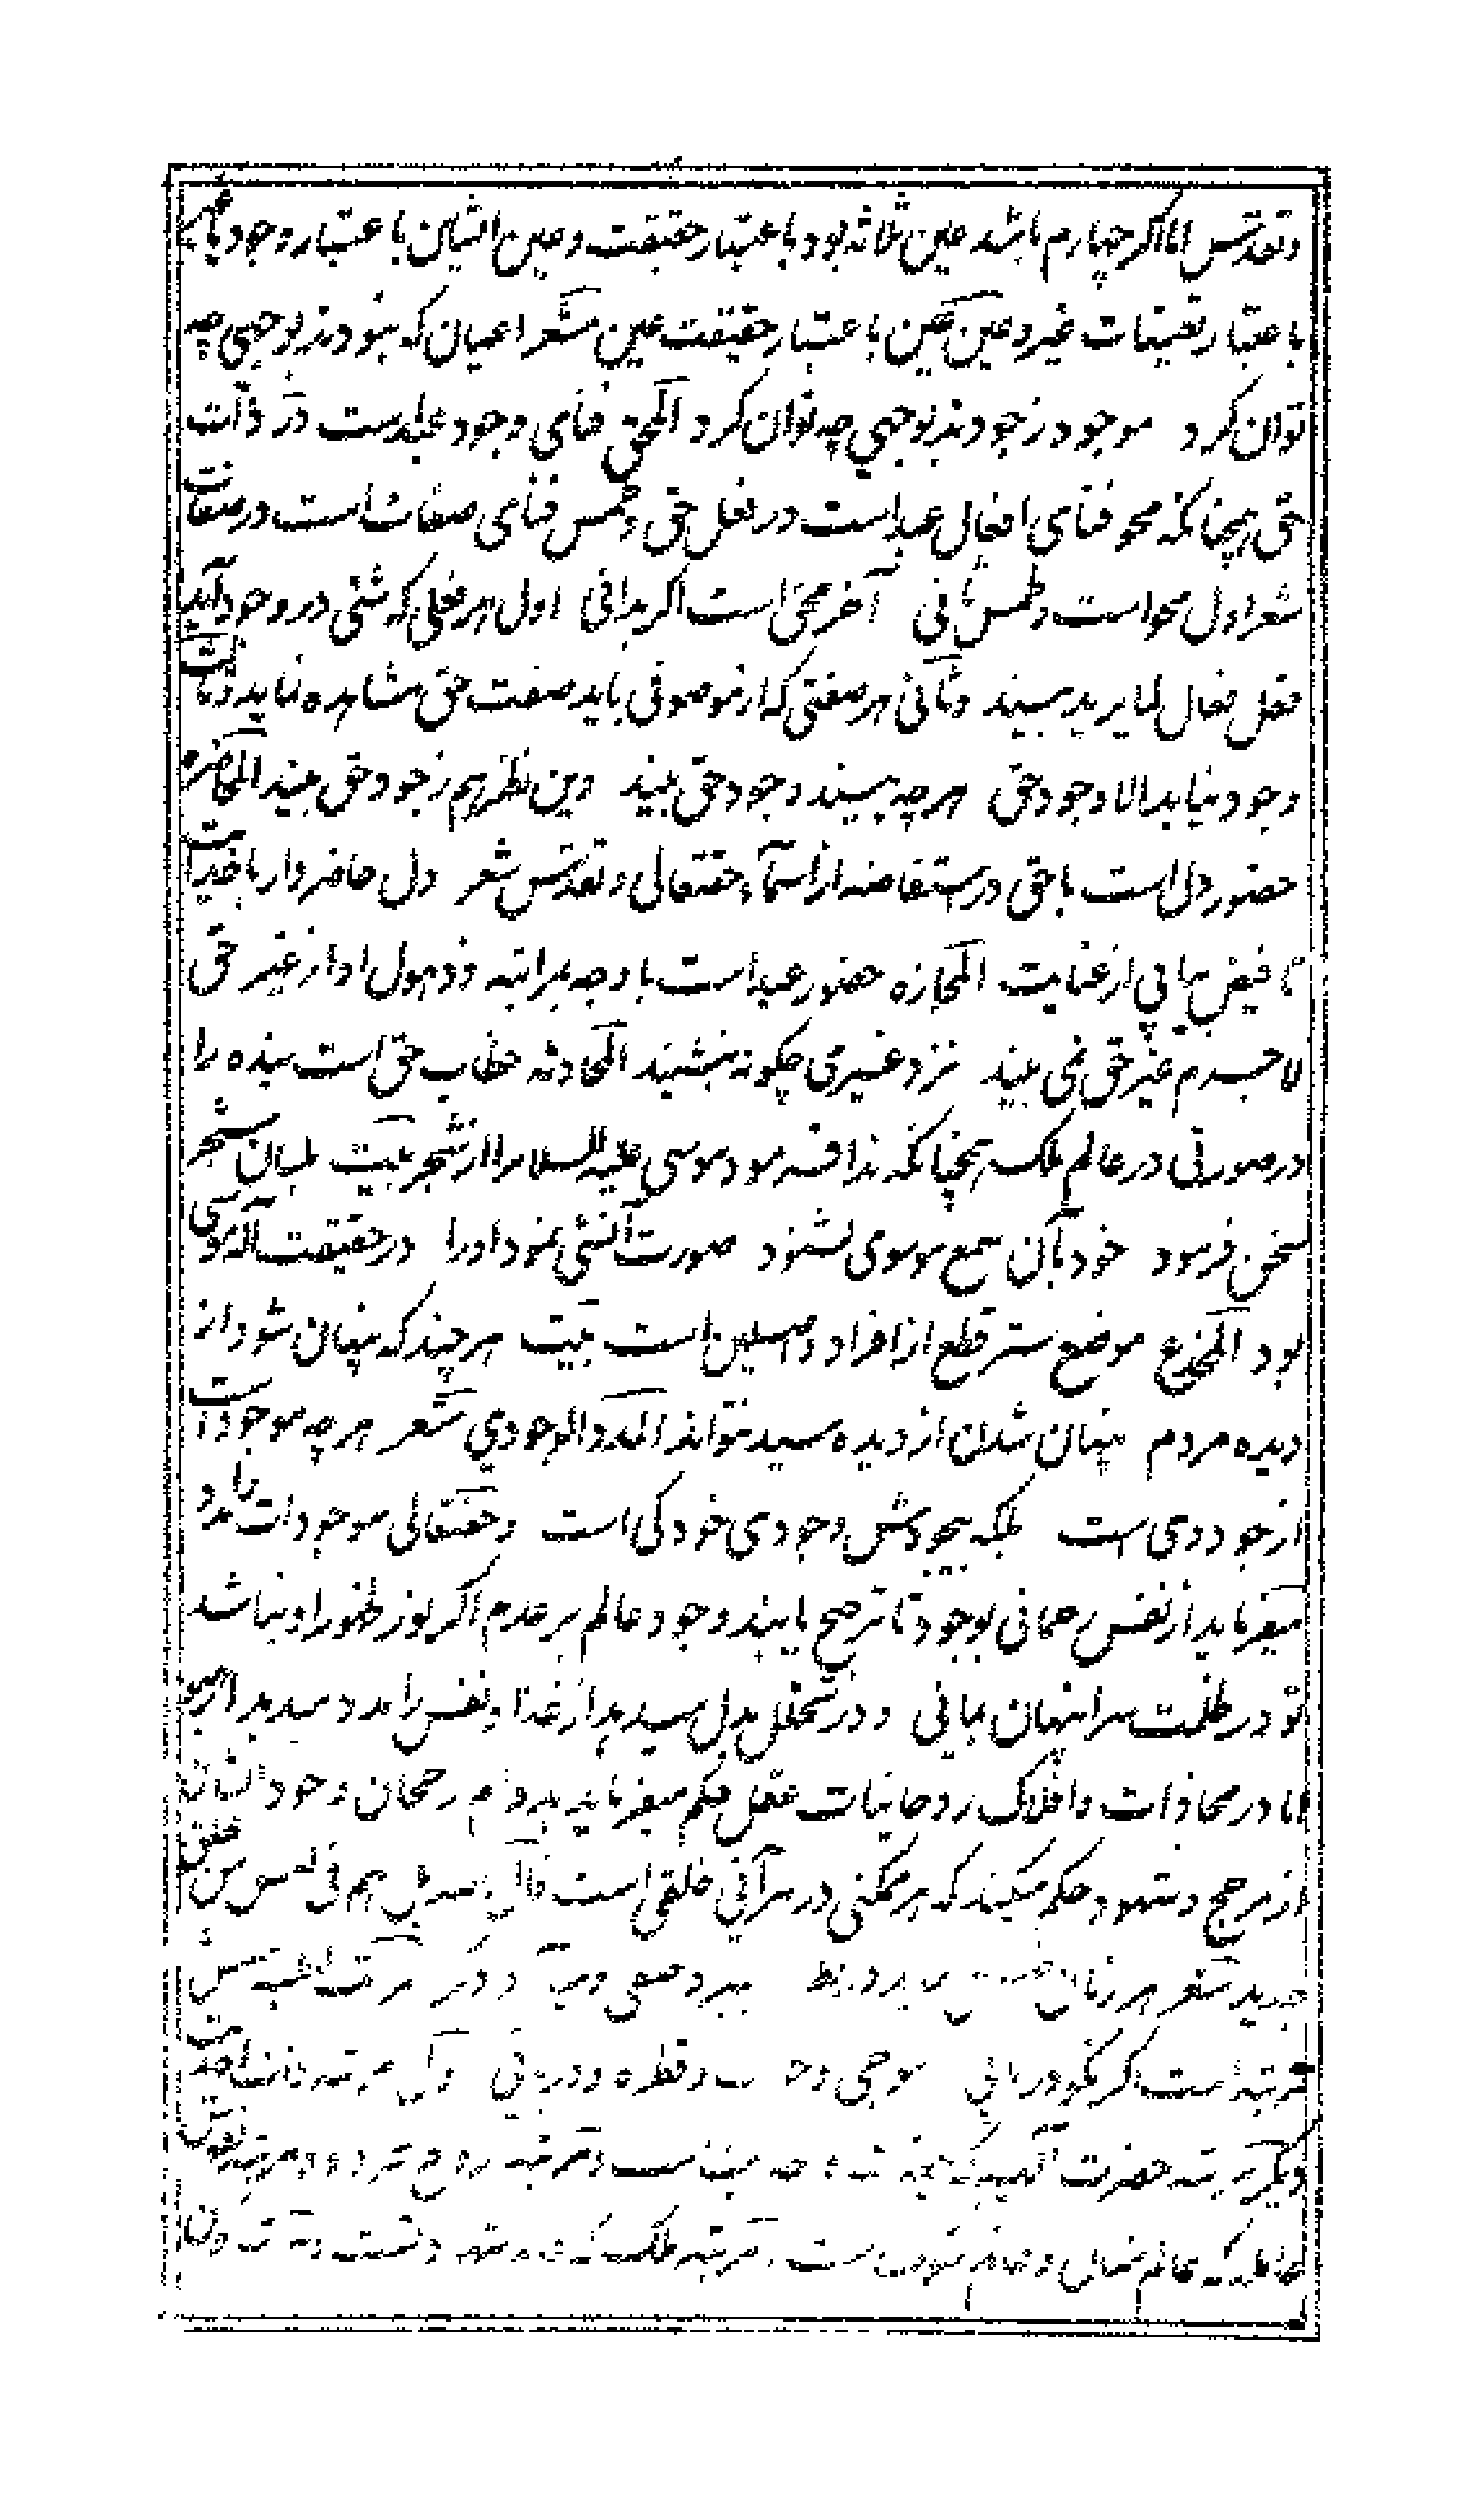 وتقدس اما اکر چهارم باشد عین ثلاثه بود باعتبار حقیقت وعین اثنین باعتبار وجود
باعتبار تعینات غیر وعین باعتبار حقیقت عین شعر اعیان که نبودند بوجهی چه
توان کرد موجود ز جودند بوجهی چه توان کرد المحق فنای وجود عبدست در ذات
حق همچنانکه محو فنای افعال عبداست در فعل حق وطمس فنای صفات است در صفات
شعر اول محواست وطمس ثانی آخر محق است اکر بدانی اول هر فعلی که شئی در وجود آید
فعل فعال لما یرید بیند وثانی هر صفتی که از موصوفی یابد صفت حق مشاهده نماید وثالث
وجود نیابد الا وجود حق هر چه بیند وجود حق بیند وین نظر هم ز جود حق بیند المحاضره
حضور دل است با حق در استفاضه از اسمآء حقتعالی وتقدس شعر دل حاضر دار با خدایت
تا فیض بیابی از عنایت المحازه حضور عبد است با وجه بمراتبه وذهول او از غیر حق
لا جرم غیر حق نمی بیند نزد غیری چکونه بنشیند المحادثه خطاب حق است بنده را
در صورتی در عالم ملک همچنانکه ندا فرمود موسی علیه السلام را از شجر بیت بلسان شجر
سخن فرمود خود بآن سمع موسوی بشنود صورت آتشی نمود او را در حقیقت آله موسی
بود المخدع موضع ستر قطع از افراد واصلین است بیت هر چند که پنهان شود از
دیده مردم پنهان شدن از دیده سید نتواند المدد الوجودی شعر هر چه موجود است
از جود وی است بلکه بیجودش وجودی خود کی است وحقتعالی موجودات را مدد
میفرماید از نفس رحمانی بوجود تا ترجیح یابند وجود عالم بر عدم اکر نور ظهور او نباشد
تو در ظلمت سرا پنهان بمانی ودر تحلل بدل میدهد از غذا ونفس را مدد میدهد از هوا
اما در جمادات وافلاک روحانیات عقل حکم میفرماید بدوام رجحان وجود ایشان
از مرجح وشهود حکم میکند که هر ممکنی در هر آنی خلقی است قال بل هم فی لبس من خلق
جدید شعر هر زمان
مرتبه است اکر نکو دریابی موجی وحباب وقطره ودریائی احدیت
دیکر مرتبه حضرت الهیه ومرتبه
عامله که عالم مثال وعالم ملکوت است ومرتبه ملک که